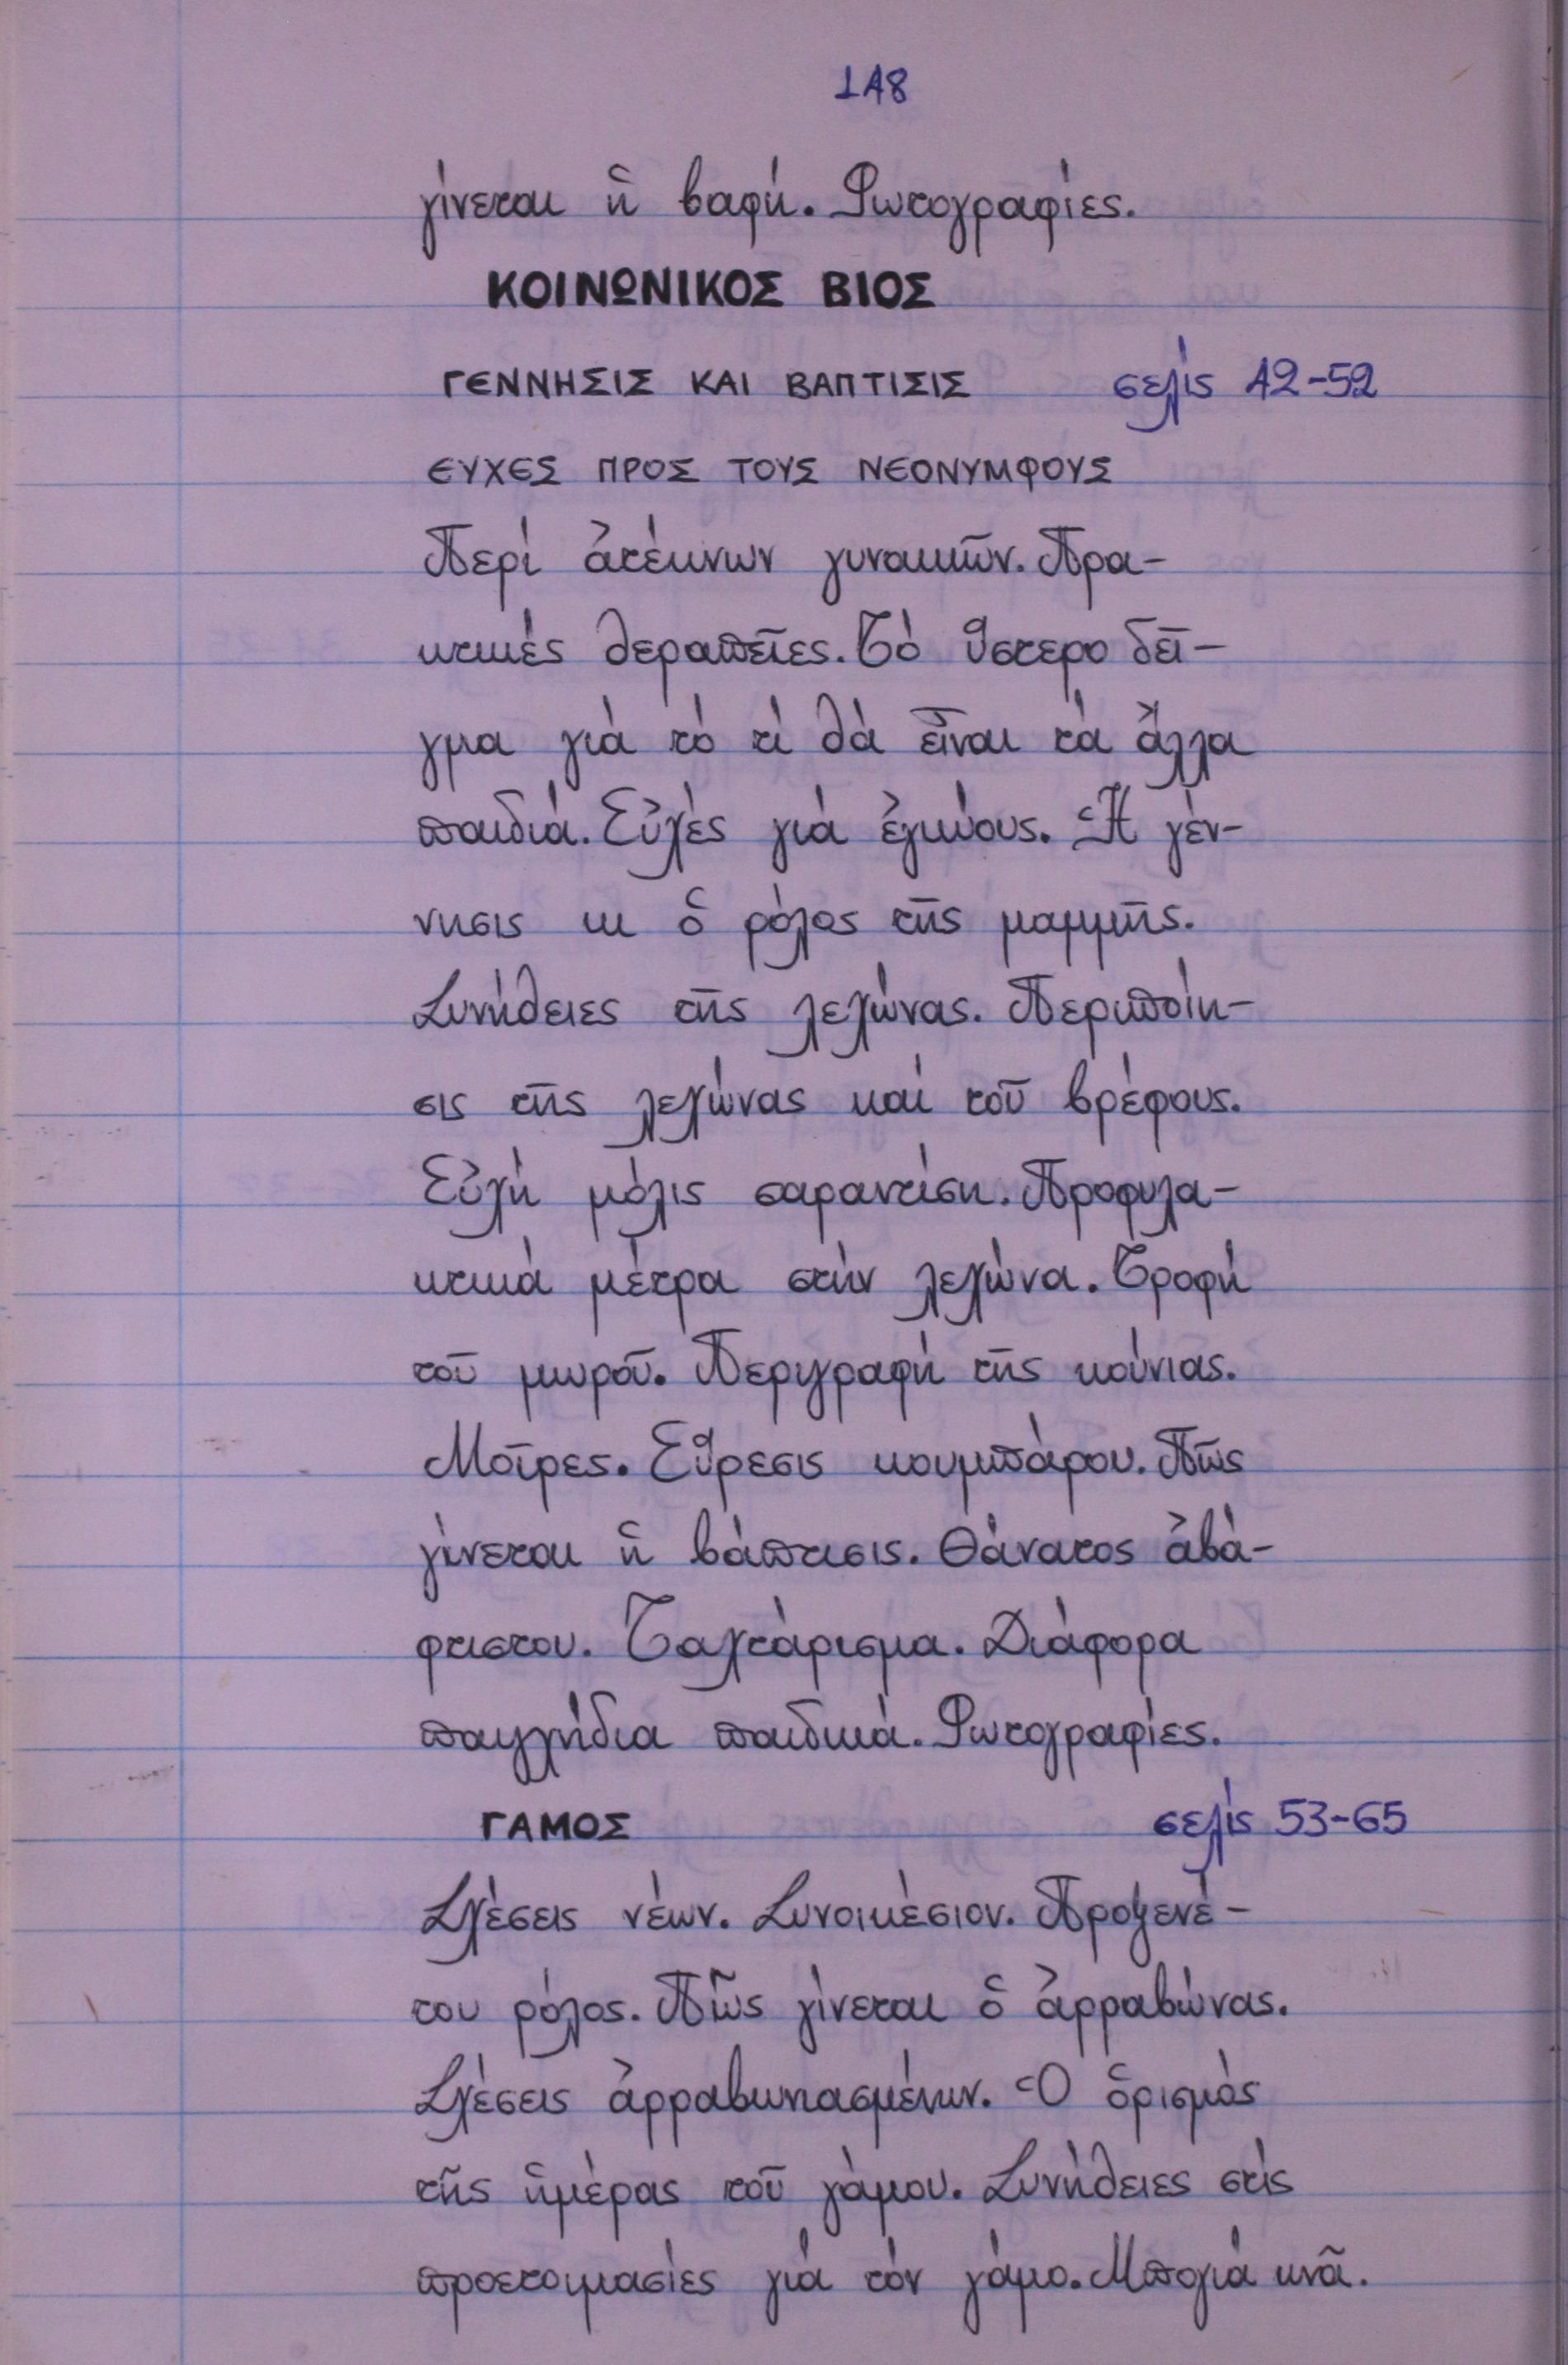 148
γίνεται ἡ βαφή. Φωτογραφίες.
ΚΟΙΝΩΝΙΚΟΣ ΒΙΟΣ
ΓΕΝΝΗΣΙΣ ΚΑΙ ΒΑΠΤΙΣΙΣ σελίς 42-52
ΕΥΧΕΣ ΠΡΟΣ ΤΟΥΣ ΝΕΟΝΥΜΦΟΥΣ
Περί ἀτέκνων γυναικῶν. Πρα-
κτικές θεραπεῖες. Τό ὕστερο δεῖ-
γμα γιά τό τί θά εἶναι τά ἄλλα
παιδιά. Εὐχές γιά ἐγκύους. Ἡ γέν-
νησις κι ὁ ρόλος τῆς μαμμῆς.
Συνήθειες τῆς λεχώνας. Περιποίη-
σις τῆς λεχώνας καί τοῦ βρέφους.
Εὐχή μόλις σαραντίση. Προφυλα-
κτικά μέτρα στήν λεχώνα. Τροφή
τοῦ μωροῦ. Περιγραφή τῆς κούνιας.
Μοῖρες. Εὕρεσις κουμπάρου. Πῶς
γίνεται ἡ βάπτισις. Θάνατος ἀβά-
φτιστου. Ταχτάρισμα. Διάφορα
παιχνίδια παιδικά. Φωτογραφίες.
ΓΑΜΟΣ σελίς 53-65
Σχέσεις νέων. Συνοικέσιον. Προξενέ-
του ρόλος. Πῶς γίνεται ὁ ἀρραβώνας.
Σχέσεις ἀρραβωνιασμένων. Ὁ ὁρισμός
τῆς ἡμέρας τοῦ γάμου. Συνήθειες στίς
προετοιμασίες γιά τόν γάμο. Μπογιά κνᾶ.